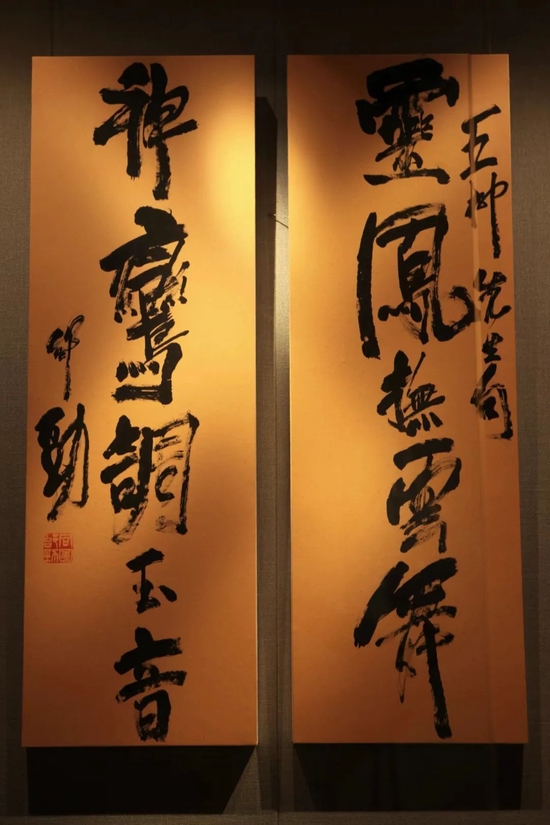 靈鳳撫雲舞
王 先生句
神鸞調玉音
勁